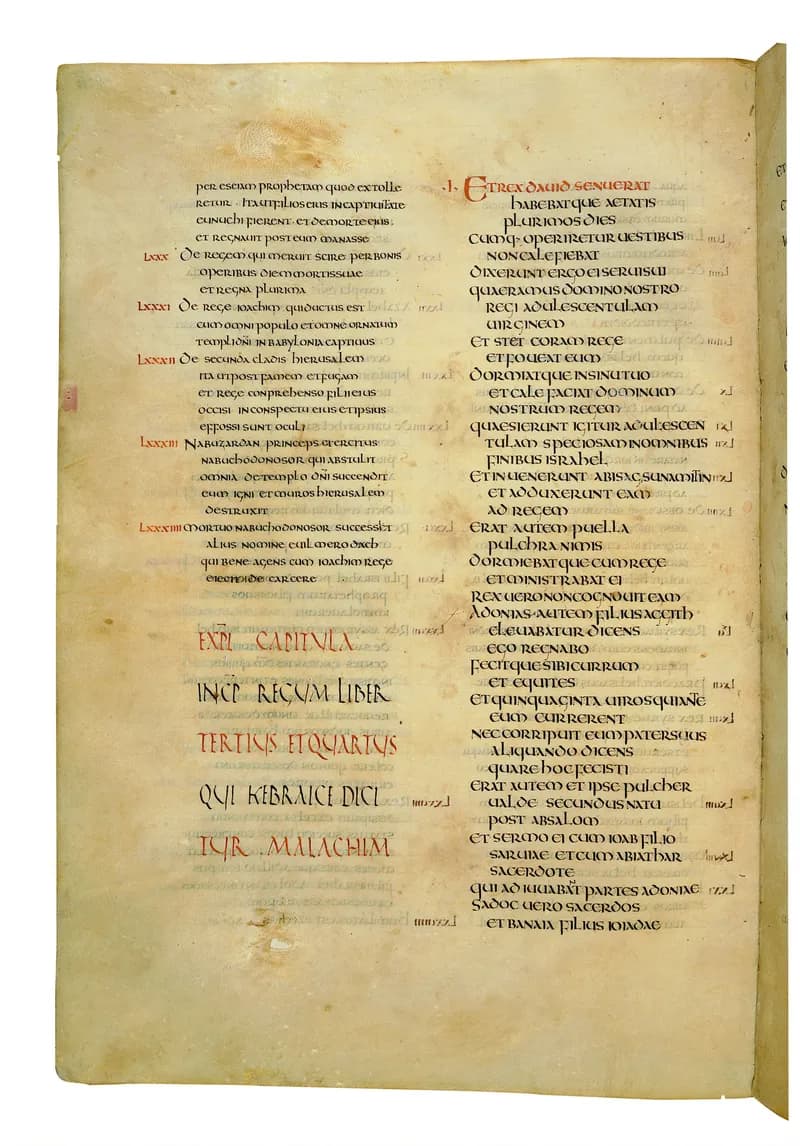 per eseiam prophetam quod extolle
retur · ita ut filios eius in captiuitate
eunuchi fierent · et de morte eius ·
et regnauit post eum manasse
Lxxx De regem qui meruit scire per bonis
operibus diem mortis suae
et regna plurima
Lxxxi De rege ioachim qui ductus est
cum omni populo et omne ornatum
templi dñi in babylonia captiuus
Lxxxii De secunda cladis hierusalem
ita ut post famem et fugam
et rege conprehenso filii eius
occisi in conspectu eius et ipsius
effossi sunt oculi
Lxxxiii Nabuzardan princeps exercitus
nabuchodonosor qui abstulit
omnia de templo dñi succendit
eum igni et muros hierusalem
destruxit
Lxxxiiii Mortuo nabuchodonosor successit
alius nomine euilmerodach
qui bene agens cum ioachim rege
de carcere
EXPL CAPITULA
INCP REGUM LIBER
TERTIUS ET QUARTUS
QUI HEBRAICE DICI
TUR MALACHIM
·I· Et rex dauid senuerat
habebatque aetatis
plurimos dies
cumq· operiretur uestibus
non calefiebat
dixerunt ergo ei serui sui
quaeramus domino nostro
regi adulescentulam
uirginem
et stet coram rege
et foueat eum
dormiatque in sinu tuo
et calefaciat dominum
nostrum regem
quaesierunt igitur adulescen
tulam speciosam in omnibus
finibus israhel
et inuenerunt abisag sunamitin
et adduxerunt eam
ad regem
erat autem puella
pulchra nimis
dormiebatque cum rege
et ministrabat ei
rex uero non cognouit eam
Adonias autem filius aggith
eleuabatur dicens
ego regnabo
fecitque sibi currum
et equites
et quinquaginta uiros qui ante
eum currerent
nec corripuit eum pater suus
aliquando dicens
quare hoc fecisti
erat autem et ipse pulcher
ualde secundus natu
post absalom
et sermo ei cum ioab filio
saruiae et cum abiathar
sacerdote
qui adiuuabant partes adoniae
sadoc uero sacerdos
et banaia filius ioiadae